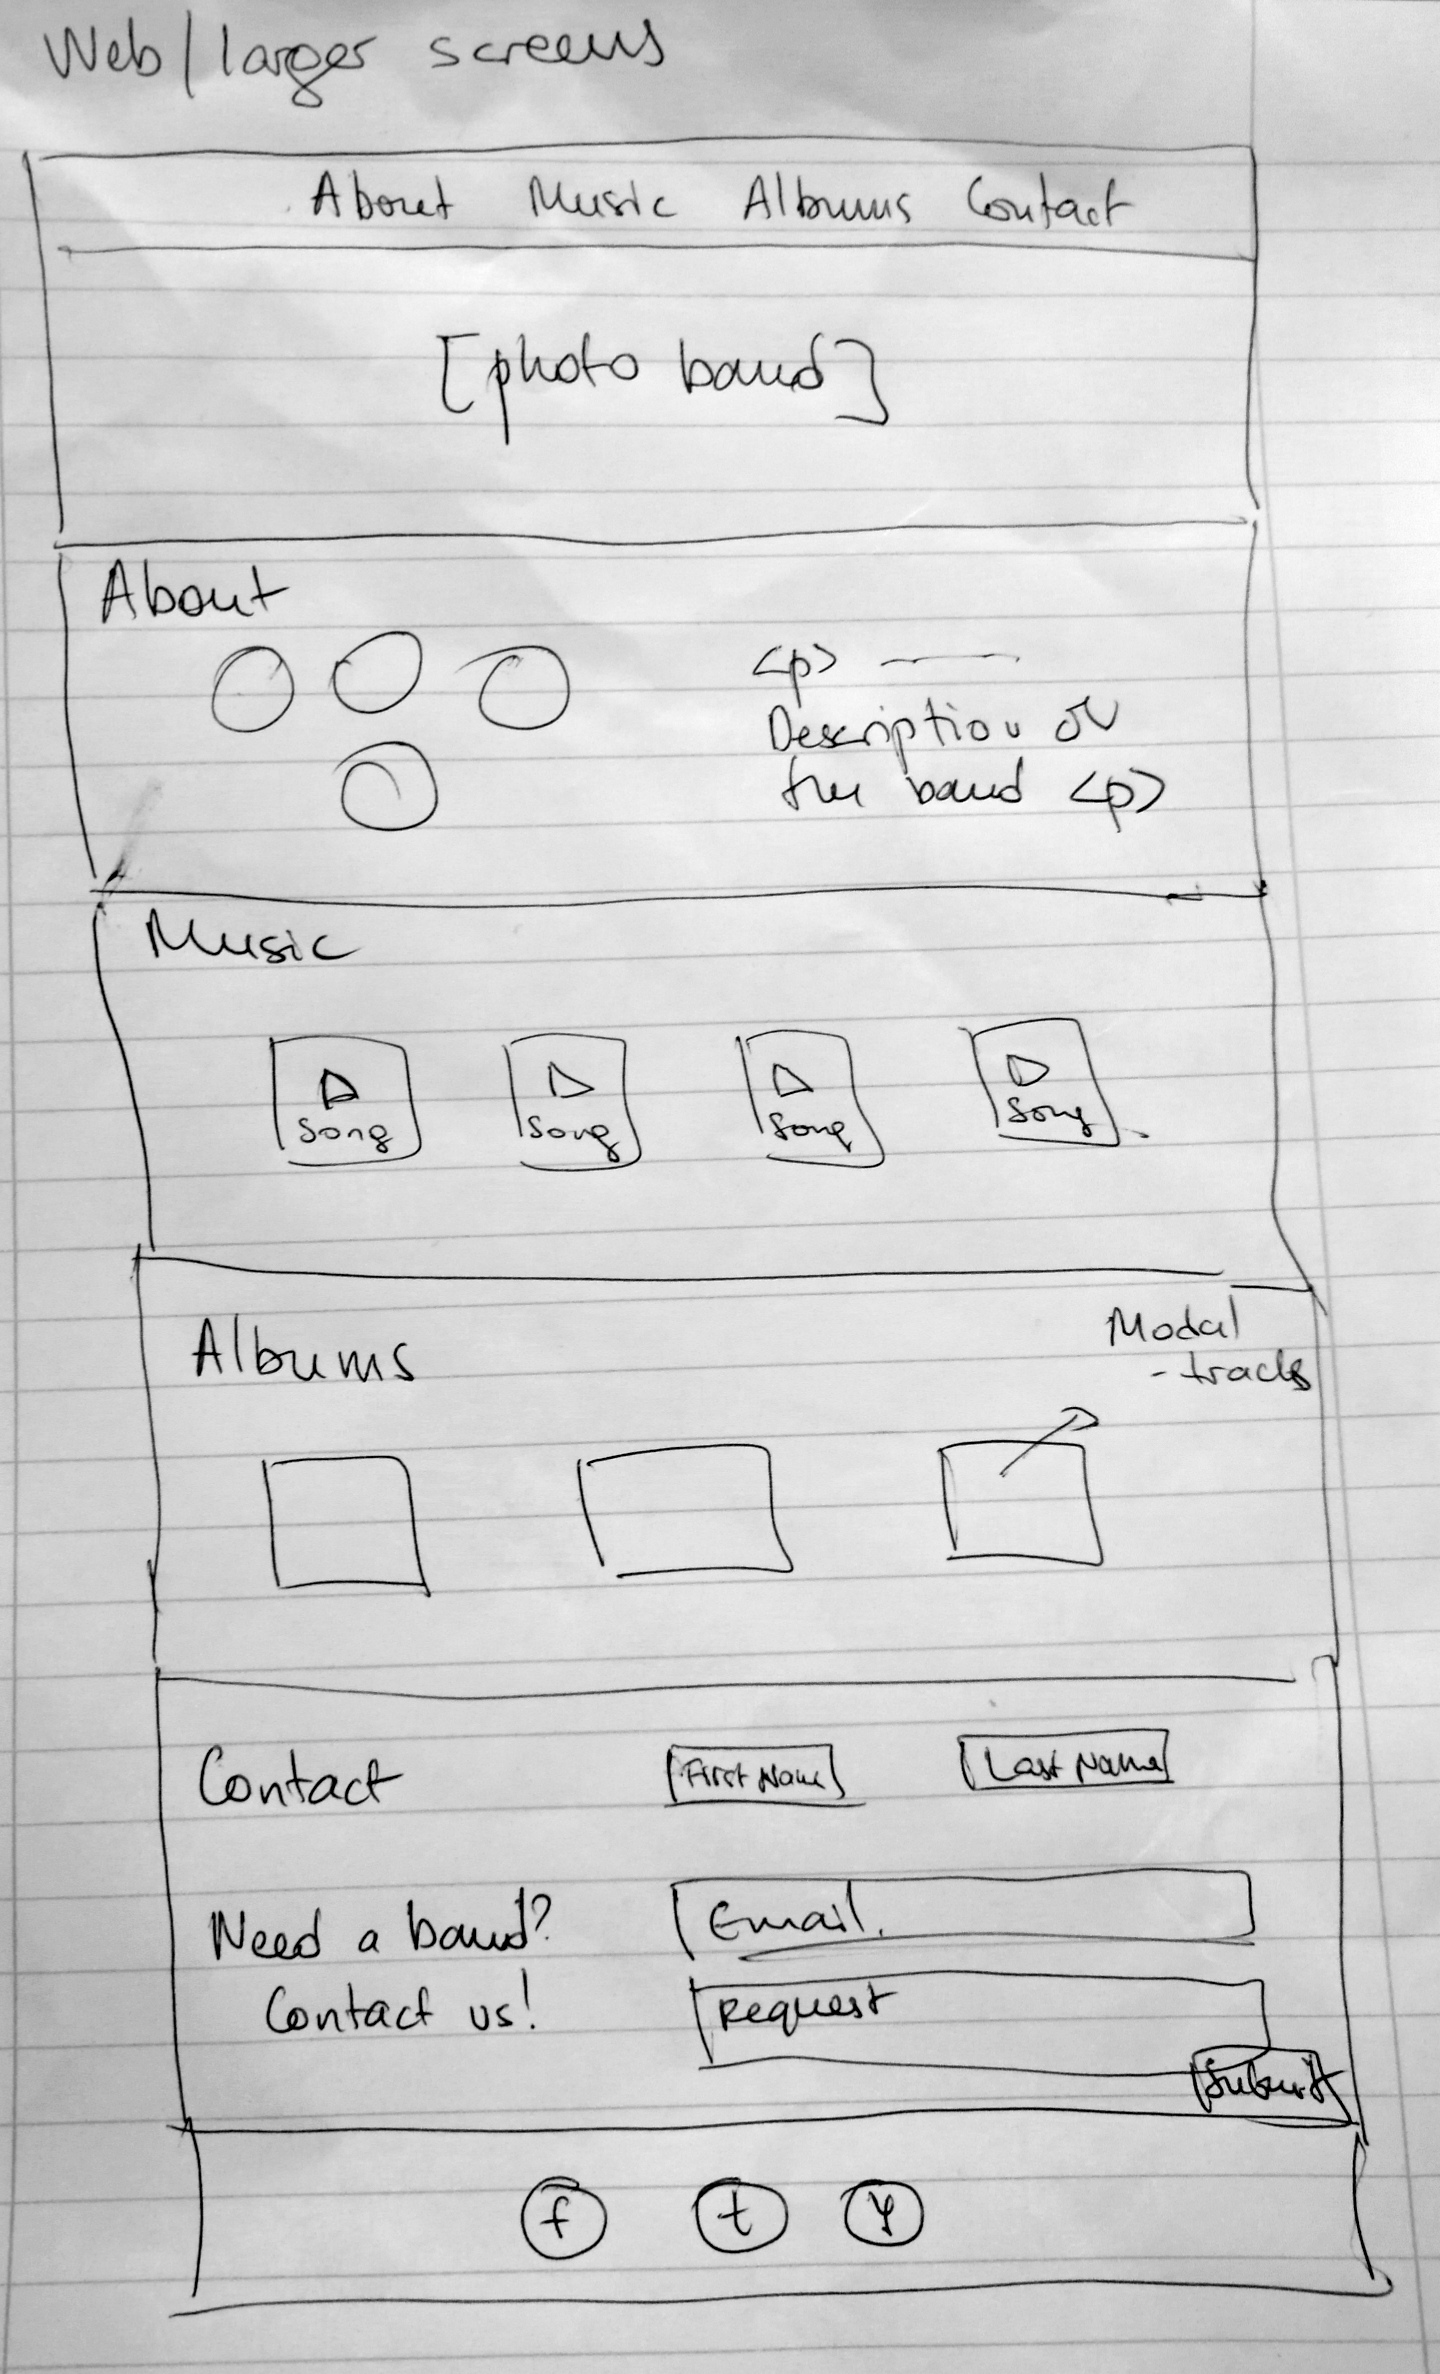 Web/larger screens
About Music Albums Contact
[photo band]
About
<p> —
Description of
the band <p>
Music
Song Song Song Song
Albums
Modal
- tracks
Contact
First Name Last Name
Need a band?
Contact us!
Email
Request
Submit
f t y